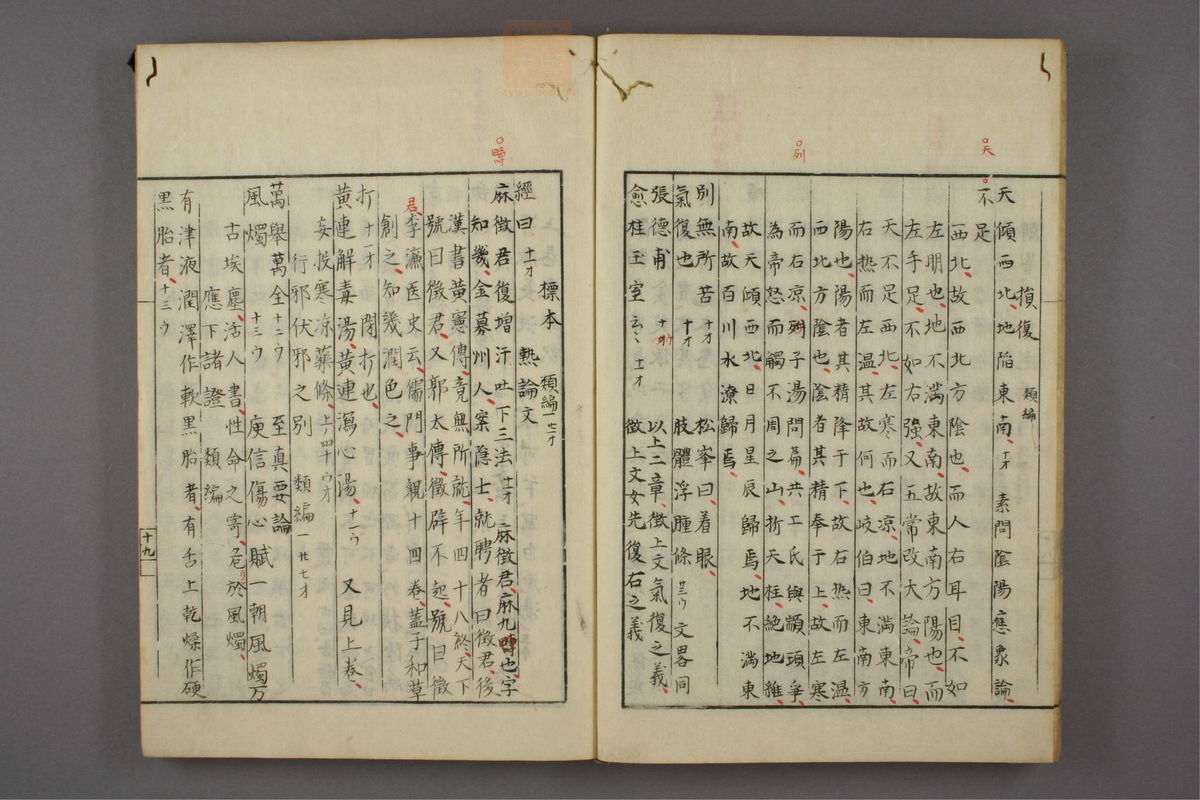 損復 類編
天傾西北地陷東南 十オ 素問陰陽應象論
天
不足西北故西北方陰也而人右耳目不如
左明也地不滿東南故東南方陽也而
左手足不如右強又五常政大論帝曰
天不足西北左寒而右凉地不滿東南
右热而左温其故何也岐伯曰東南方
陽也陽者其精降于下故右热而左温
西北方陰也陰者其精奉于上故左寒
而右凉列子湯問篇共工氏與顓頊爭
列
為帝怒而觸不周之山折天柱絕地維
故天傾西北日月星辰歸焉地不滿東
南故百川水潦歸焉
別無所苦 十オ 松峯曰着眼
氣復也 十オ 肢體浮腫條 廿三ウ 文畧同
張德甫 十オ 以上二章徵上文氣復之義
愈桂玉室云〻 十一オ 徵上文女先復右之義
標本 熱論文 類編一
經曰 十一オ
麻徵君復增汗吐下三法 十一オ 麻徵君麻九疇也字
疇
知幾金莫州人案隐士就聘者曰徵君後
漢書黄憲傳竟無所就年四十八終天下
號曰徵君又郭太傳徵辟不起號曰徵
君李濂医史云儒門事親十四卷蓋子和草
創之知幾潤色之
打 十一オ 閉打也
黄連解毒湯黄連瀉心湯 十一ウ 又見上卷
妄投寒凉藥條 上ノ四十ウオ
行邪伏邪之別 類編一 廿七オ
萬舉萬全 十二ウ 至真要論
風燭 十三ウ 庾信傷心賦一朝風燭万
古埃塵活人書性命之寄危於風燭
應下諸證 類編
有津液潤澤作軟黒胎者有舌上乾燥作硬
黒胎者 十三ウ
十九